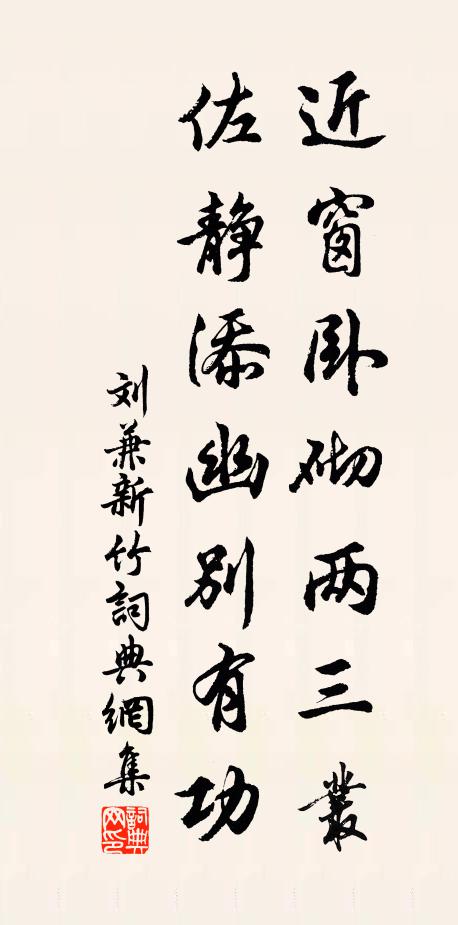 近窗卧砌两三叢
佐静添幽别有功
刘兼新竹詞典網集
詞典网印